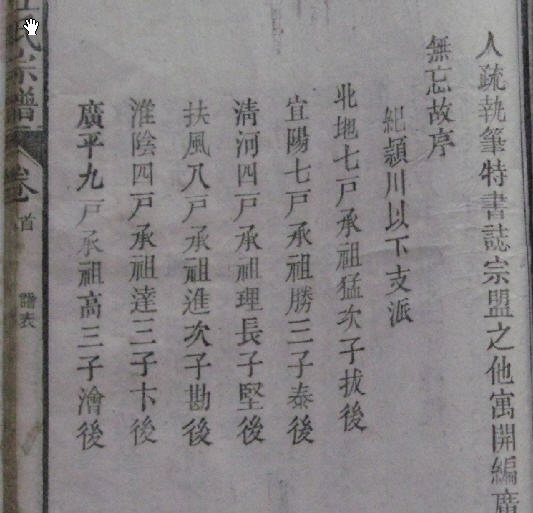 人疏執筆特書誌宗盟之他寓開編廣
無忘故序
紀潁川以下支派
北地七戸承祖猛次子拔後
宜陽七戸承祖勝三子泰後
淸河四戸承祖理長子堅後
扶風八戸承祖進次子勘後
淮陰四戸承祖達三子卞後
廣平九戸承祖高三子澮後
氏宗譜
卷首
譜表